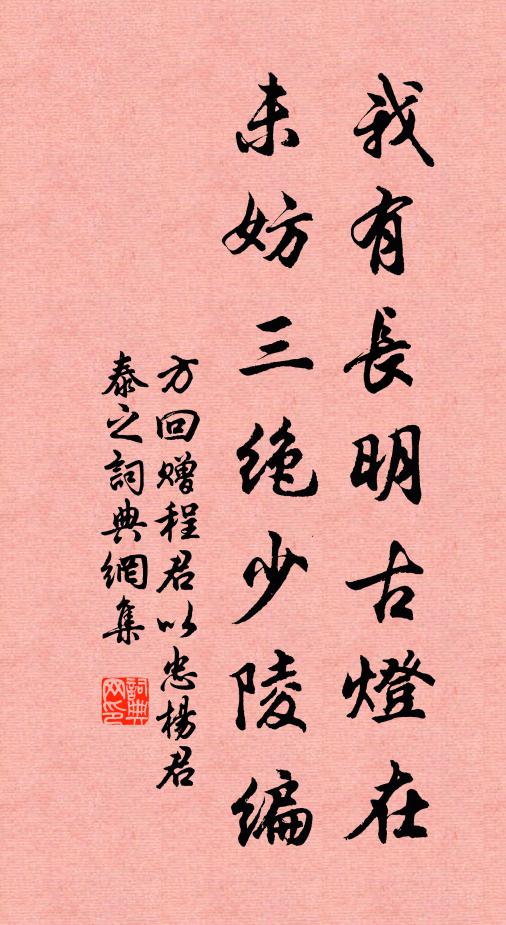 我有長明古燈在
未妨三绝少陵编
方回赠程君以忠楊君
泰之詞典網集
詞典网印